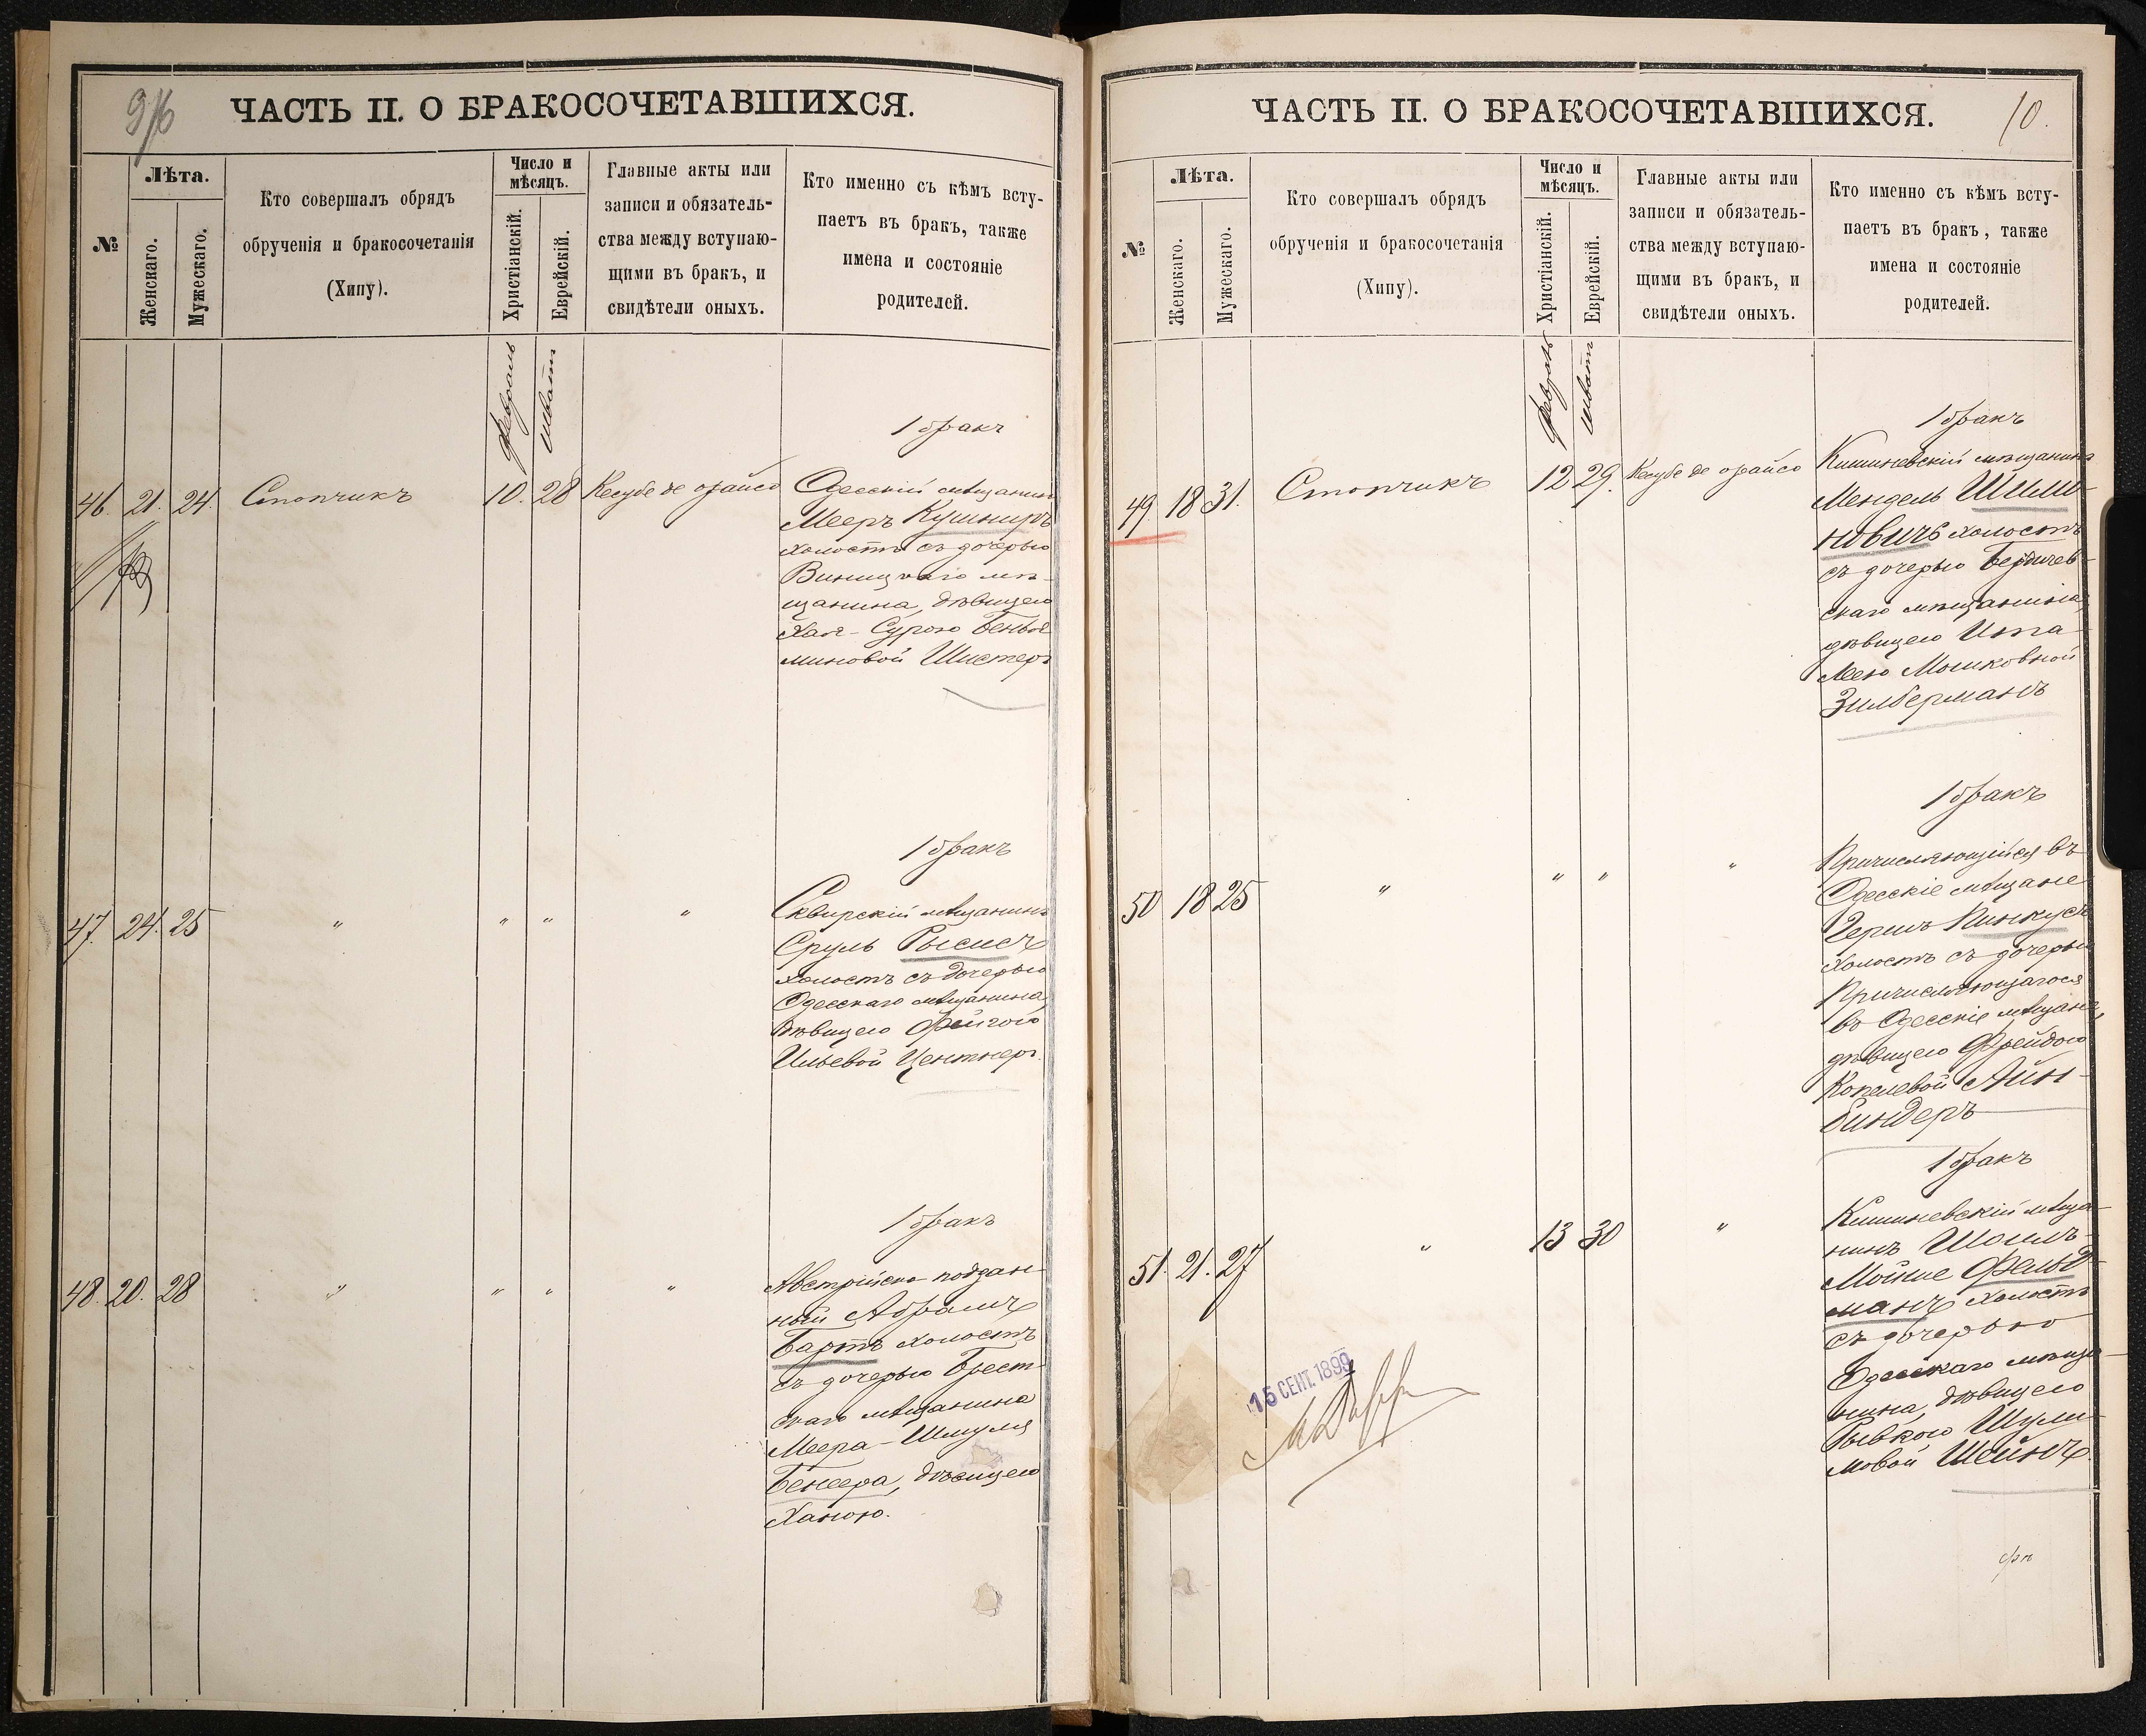 9/16
ЧАСТЬ II. О БРАКОСОЧЕТАВШИХСЯ.
№
Лѣта.
Женскаго.
Мужескаго.
Кто совершалъ обрядъ
обрученія и бракосочетанія
(Хипу).
Число и
мѣсяцъ.
Христіанскій.
Еврейскій.
Главные акты или
записи и обязатель-
ства между вступаю-
щими въ бракъ, и
свидѣтели оныхъ.
Кто именно съ кѣмъ всту-
паетъ въ бракъ, также
имена и состояніе
родителей.
февраль
шватъ
1 бракъ
46. 21. 24. Столчикъ 10. 28 Кесубе де орайсо
Одесскій мѣщанинъ
Мееръ Кушниръ
холостъ съ дочерью
Винницкаго мѣ-
щанина, дѣвицею
Хая-Сурою Бенья-
миновой Шистеръ
1 бракъ
47. 24. 25 " " " "
Сквирскій мѣщанинъ
Сруль Рысисъ
холостъ съ дочерью
Одесскаго мѣщанина,
дѣвицею Фейгою
Ильевой Центнеръ.
1 бракъ
48. 20. 28 " " " "
Австрійско-поддан-
ный Абрамъ
Бартъ холостъ
съ дочерью Брест-
скаго мѣщанина
Меера-Шмуля
Бенсера, дѣвицею
Ханою.
ЧАСТЬ II. О БРАКОСОЧЕТАВШИХСЯ.
10.
№
Лѣта.
Женскаго.
Мужескаго.
Кто совершалъ обрядъ
обрученія и бракосочетанія
(Хипу).
Число и
мѣсяцъ.
Христіанскій.
Еврейскій.
Главные акты или
записи и обязатель-
ства между вступаю-
щими въ бракъ, и
свидѣтели оныхъ.
Кто именно съ кѣмъ всту-
паетъ въ бракъ, также
имена и состояніе
родителей.
февраль
шватъ
1 бракъ
49. 18 31. Столчикъ 12 29. Кесубе де орайсо
Кишиневскій мѣщанинъ
Мендель Шими-
новичъ холостъ
съ дочерью Бердичев-
скаго мѣщанина,
дѣвицею Ита
Леею Мошковной
Зилберманъ
1 бракъ
50 18 25 " " " "
Причисляющійся въ
Одесскіе мѣщане
Гершъ Пинкусъ
холостъ съ дочерью
Причисляющагося
въ Одесскіе мѣщане,
дѣвицею Фрейдою
Копелевой Айн-
биндеръ
1 бракъ
51. 21. 27 " 13 30 "
Кишиневскій мѣща-
нинъ Шоилъ-
Мойше Фельд-
манъ холостъ
съ дочерью
Одесскаго мѣща-
нина, дѣвицею
Рывкою Шули-
мовой Шейнъ.
15 СЕНТ. 1899